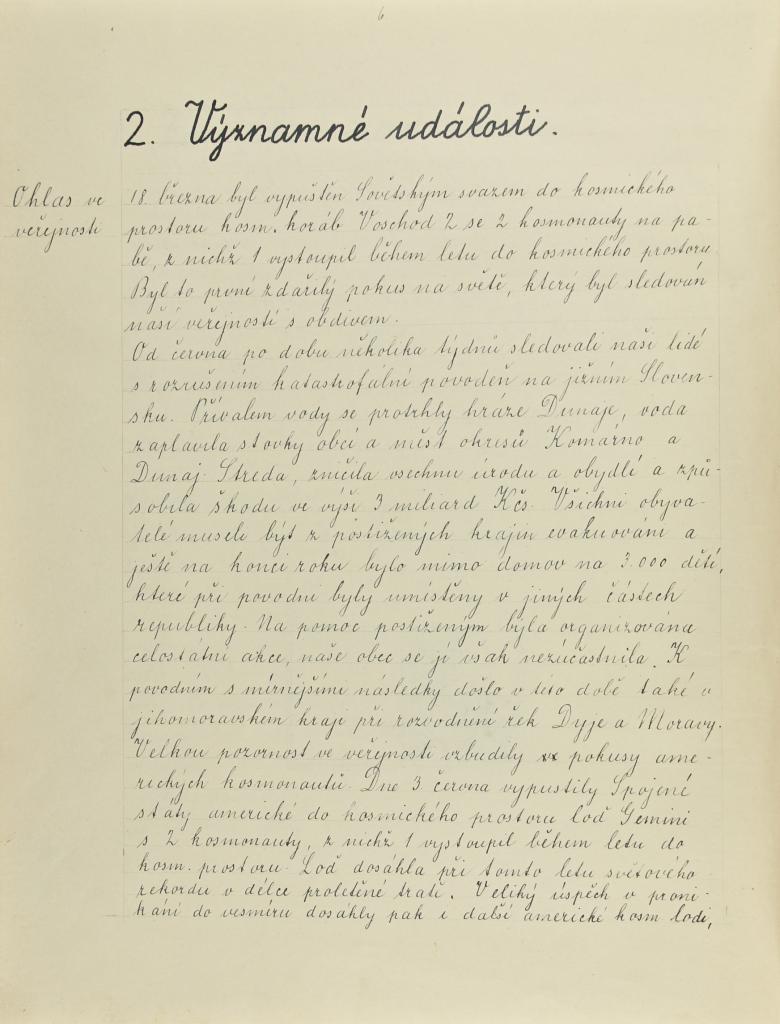 6
2. Významné události.
Ohlas ve
veřejnosti
18. března byl vypuštěn Sovětským svazem do kosmického
prostoru kosm. koráb Voschod 2 se 2 kosmonauty na pa-
bě, z nichž 1 vystoupil během letu do kosmického prostoru.
Byl to první zdařilý pokus na světě, který byl sledován
naší veřejností s obdivem.
Od června po dobu několika týdnů sledovali naši lidé
s rozrušením katastrofální povodeň na jižním Sloven-
sku. Přívalem vody se protrhly hráze Dunaje, voda
zaplavila stovky obcí a měst okresů Komárno a
Dunaj. Streda, zničila všechnu úrodu a obydlí a způ-
sobila škodu ve výši 3 miliard Kčs. Všichni obyva-
telé museli být z postižených krajin evakuováni a
ještě na konci roku bylo mimo domov na 3.000 dětí,
které při povodni byly umístěny v jiných částech
republiky. Na pomoc postiženým byla organizována
celostátní akce, naše obec se jí však nezúčastnila. K
povodním s mírnějšími následky došlo v této době také v
jihomoravském kraji při rozvodnění řek Dyje a Moravy.
Velkou pozornost ve veřejnosti vzbudily pokusy ame-
rických kosmonautů. Dne 3. června vypustily Spojené
státy americké do kosmického prostoru loď Gemini
s 2 kosmonauty, z nichž 1 vystoupil během letu do
kosm. prostoru. Loď dosáhla při tomto letu světového
rekordu v délce proletěné trati. Veliký úspěch v proni-
kání do vesmíru dosáhly pak i další americké kosm lodi,